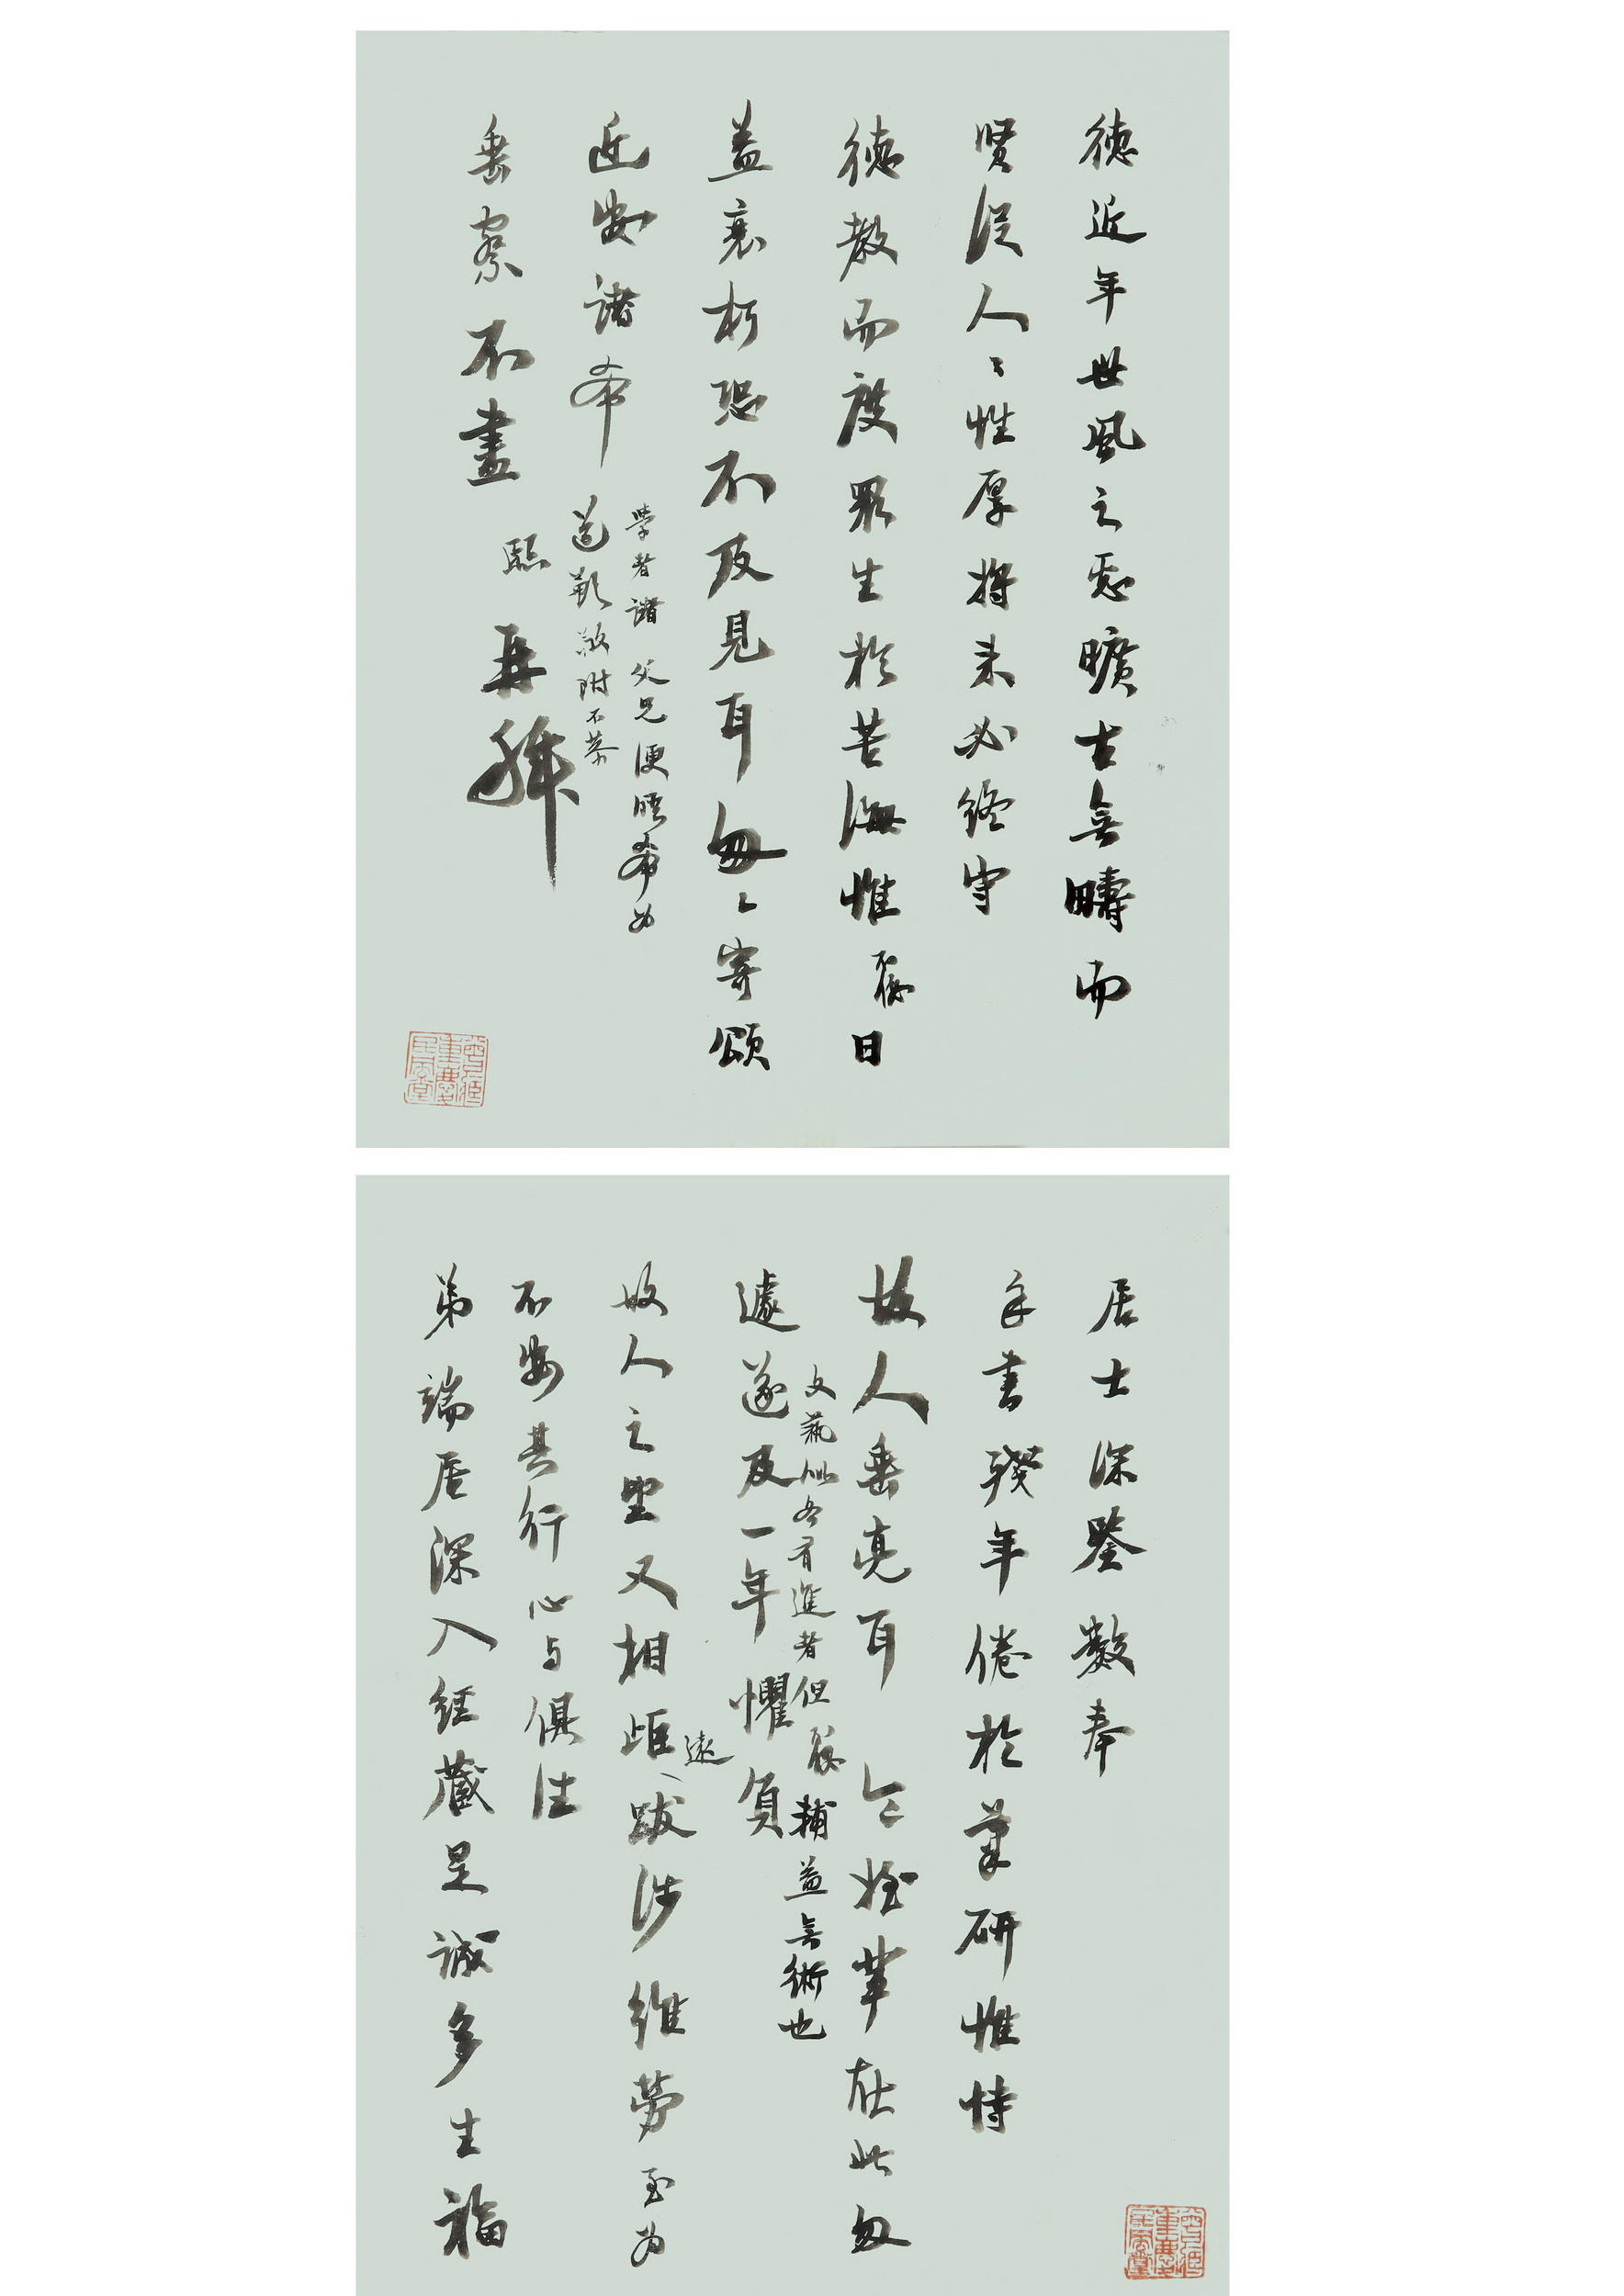 德近年世風之惡曠古無疇而
賢從人〻性厚將來必終守
德教而度眾生於苦海惟不佞日
益衰朽恐不及見耳匆〻寄頌
近安諸希
學者諸父兄便晤希為
道敬附不恭
垂察不盡
熙再拜
居士深鑒數奉
手書殘年倦於筆研惟恃
故人垂亮耳令姪輩在此匆
文藝似各有進者但不佞輔益無術也
遽遂及一年懼負
故人之望又相距遠跋涉維勞至為
不安其行心與俱往
弟端居深入經藏是誠多生福